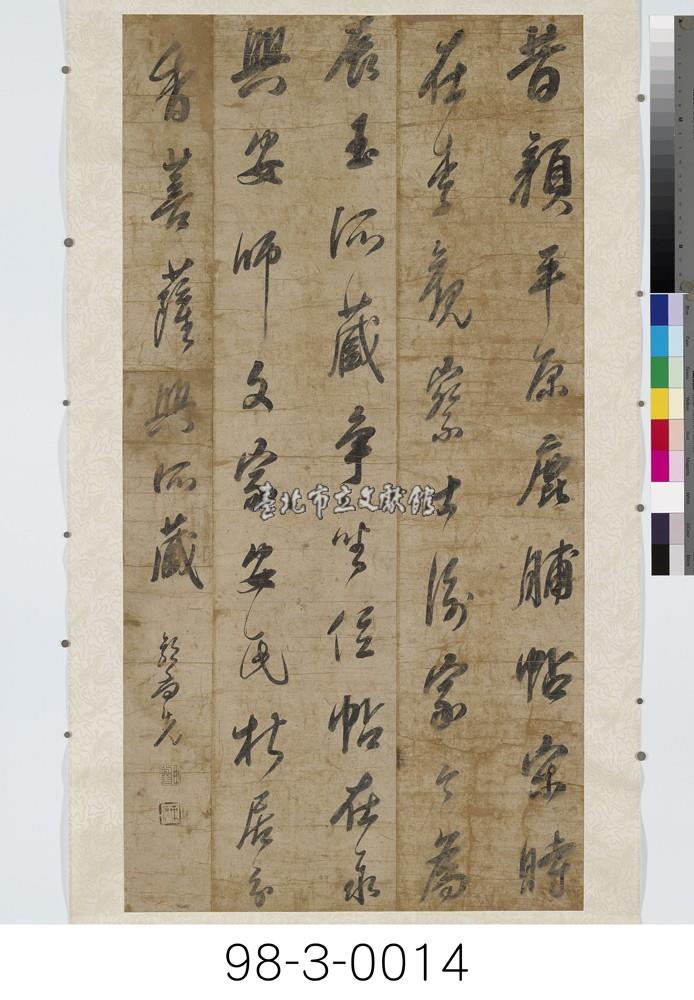 昔顏平原鹿脯帖宋時
在李觀察士衡家今為
辰玉所藏爭坐位帖在永
興安師文家安氏析居分
香菩薩與所藏
鄭齋先
臺北市立文獻館
98-3-0014